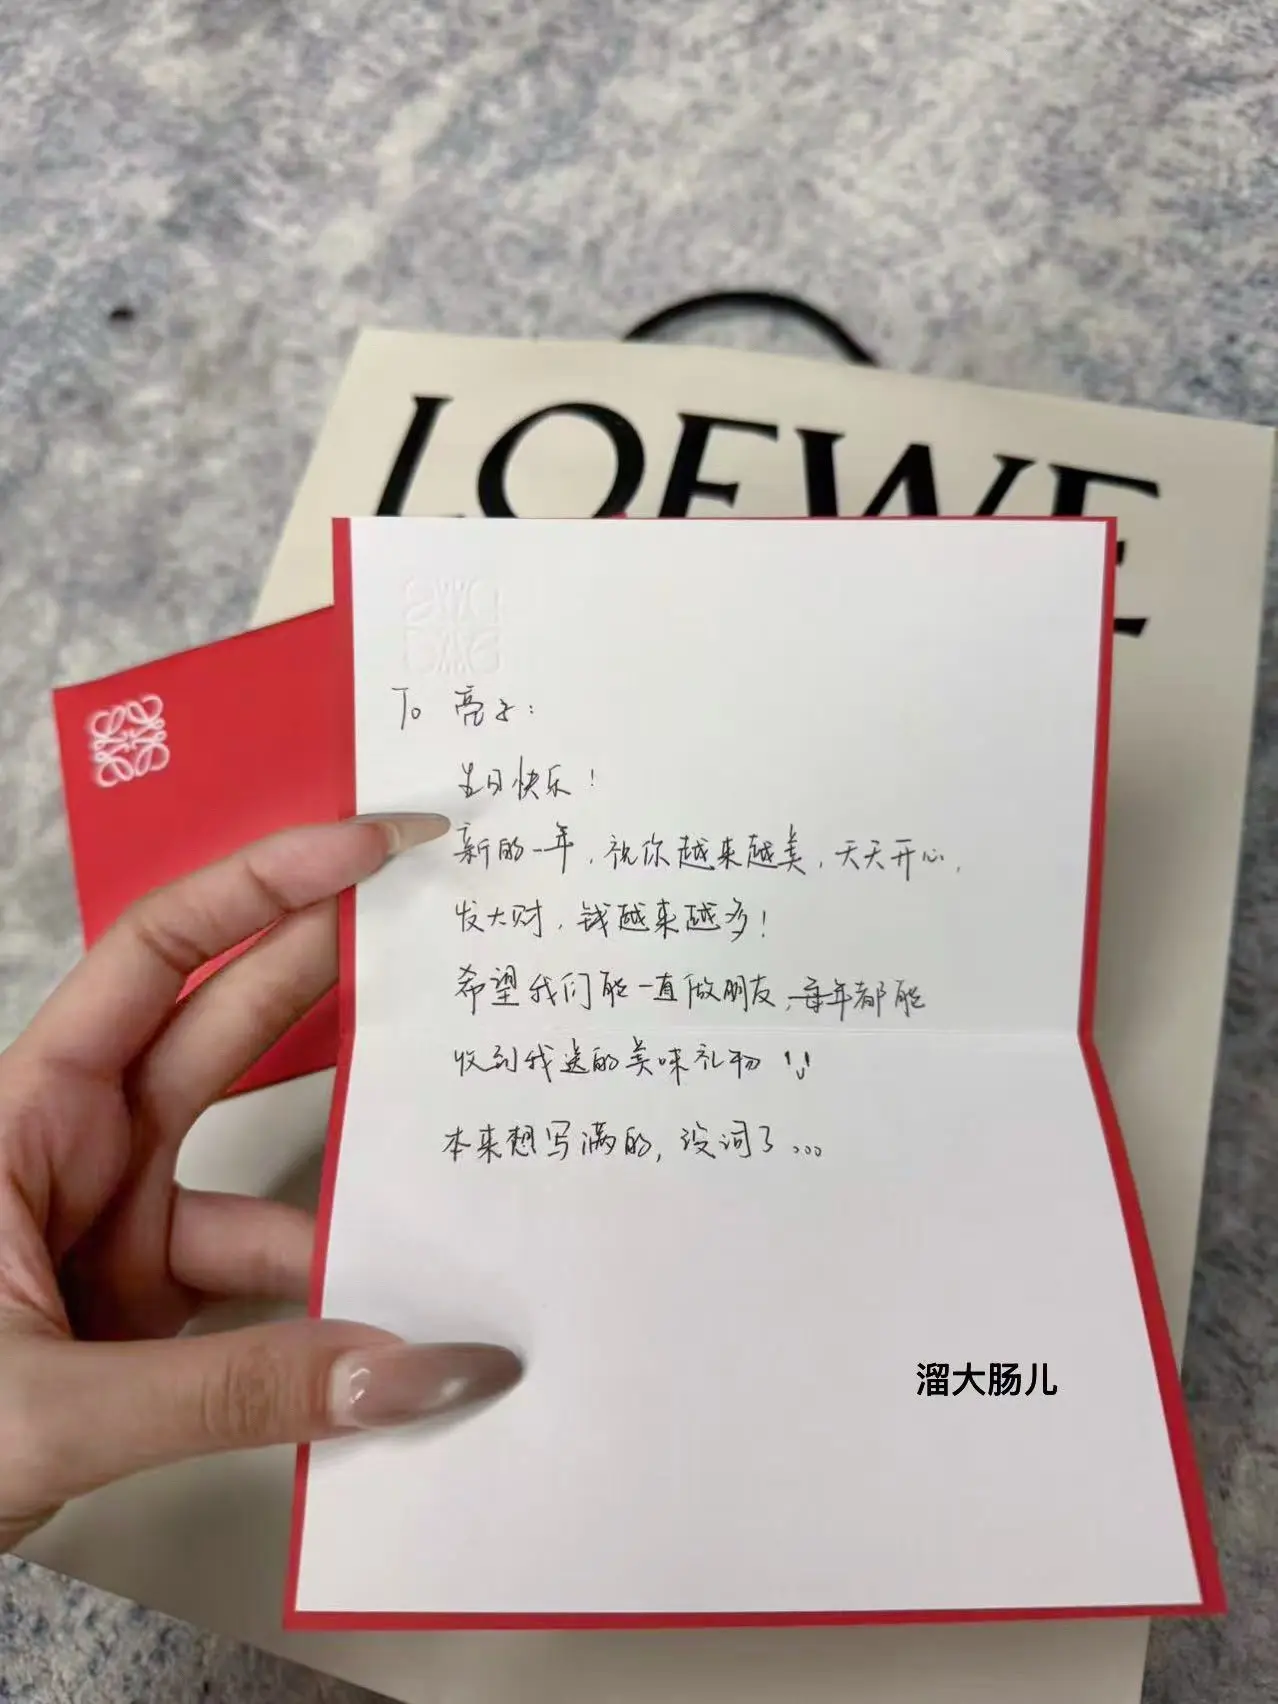 LOEWE
To 亮子：
生日快乐！
新的一年，祝你越来越美，天天开心，
发大财，钱越来越多！
希望我们能一直做朋友，每年都能
收到我送的美味礼物！！
本来想写满的，没词了...
溜大肠儿